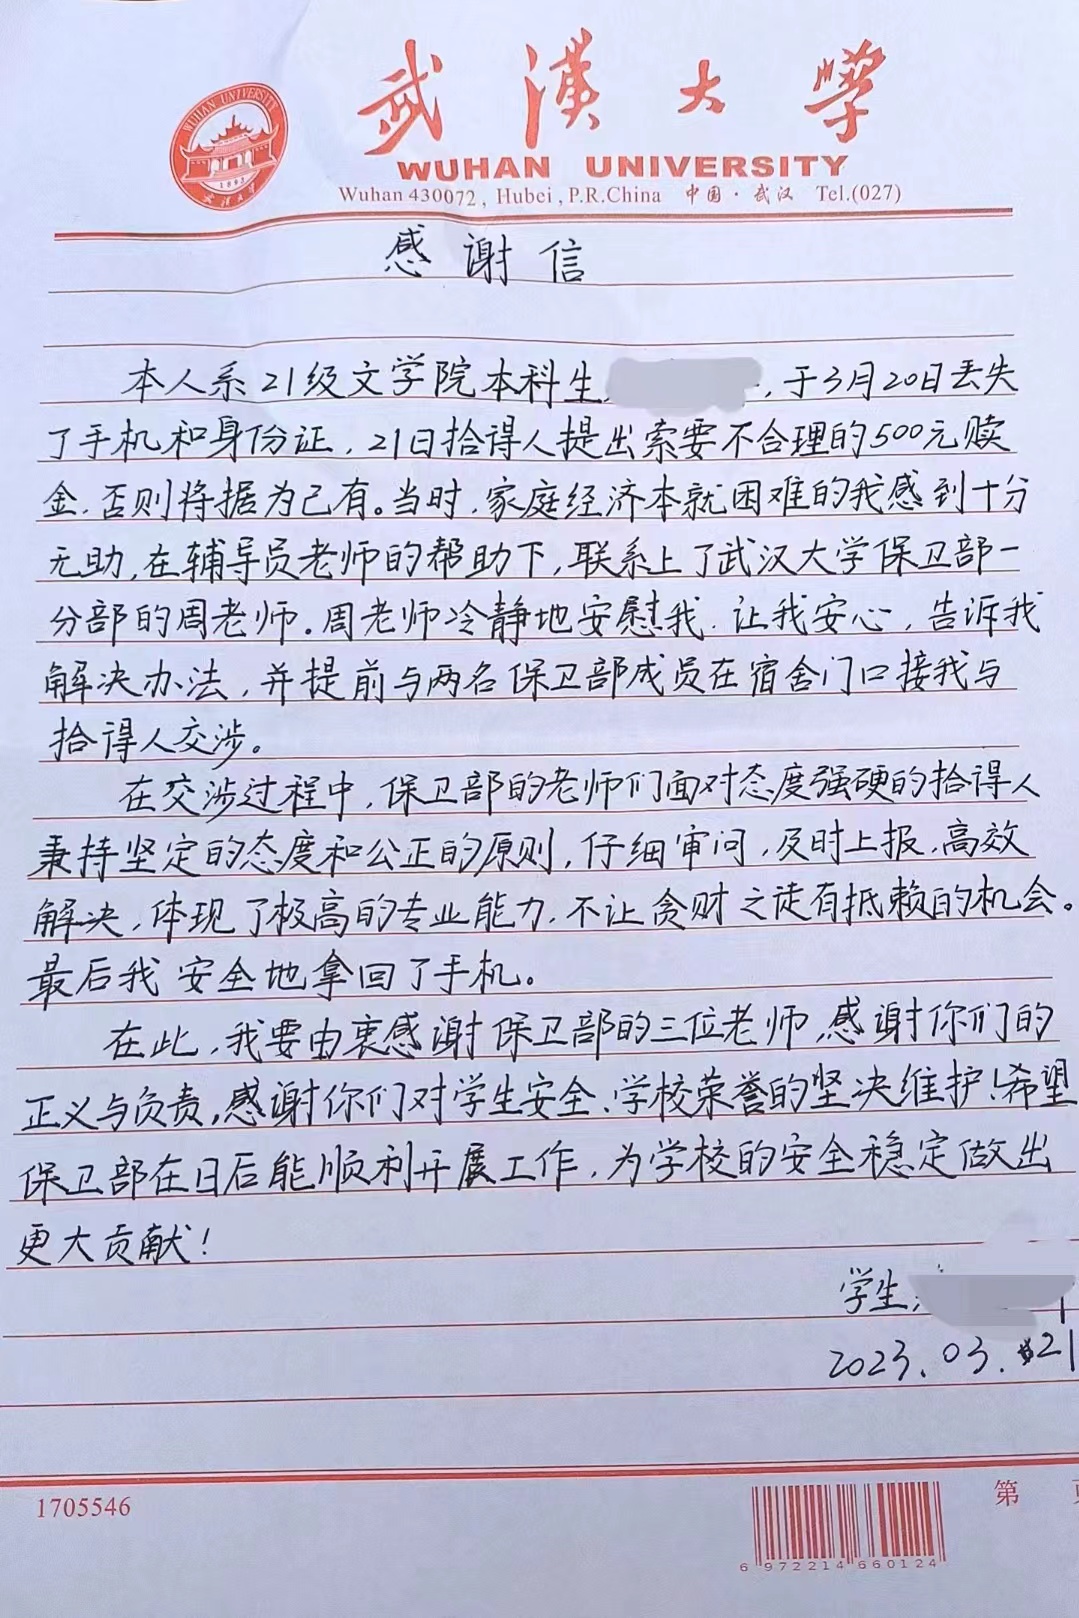 武漢大學
WUHAN UNIVERSITY
Wuhan 430072, Hubei, P.R.China 中国·武汉 Tel.(027)
WUHAN UNIVERSITY
1893
武汉大学
感谢信
本人系21级文学院本科生 ,于3月20日丢失
了手机和身份证,21日拾得人提出索要不合理的500元赎
金,否则将据为己有。当时,家庭经济本就困难的我感到十分
无助,在辅导员老师的帮助下,联系上了武汉大学保卫部一
分部的周老师。周老师冷静地安慰我,让我安心,告诉我
解决办法,并提前与两名保卫部成员在宿舍门口接我与
拾得人交涉。
在交涉过程中,保卫部的老师们面对态度强硬的拾得人
秉持坚定的态度和公正的原则,仔细审问,及时上报,高效
解决,体现了极高的专业能力,不让贪财之徒有抵赖的机会。
最后我安全地拿回了手机。
在此,我要由衷感谢保卫部的三位老师,感谢你们的
正义与负责,感谢你们对学生安全、学校荣誉的坚决维护!希望
保卫部在日后能顺利开展工作,为学校的安全稳定做出
更大贡献!
学生
2023.03.21
1705546
6 972214 660124
第